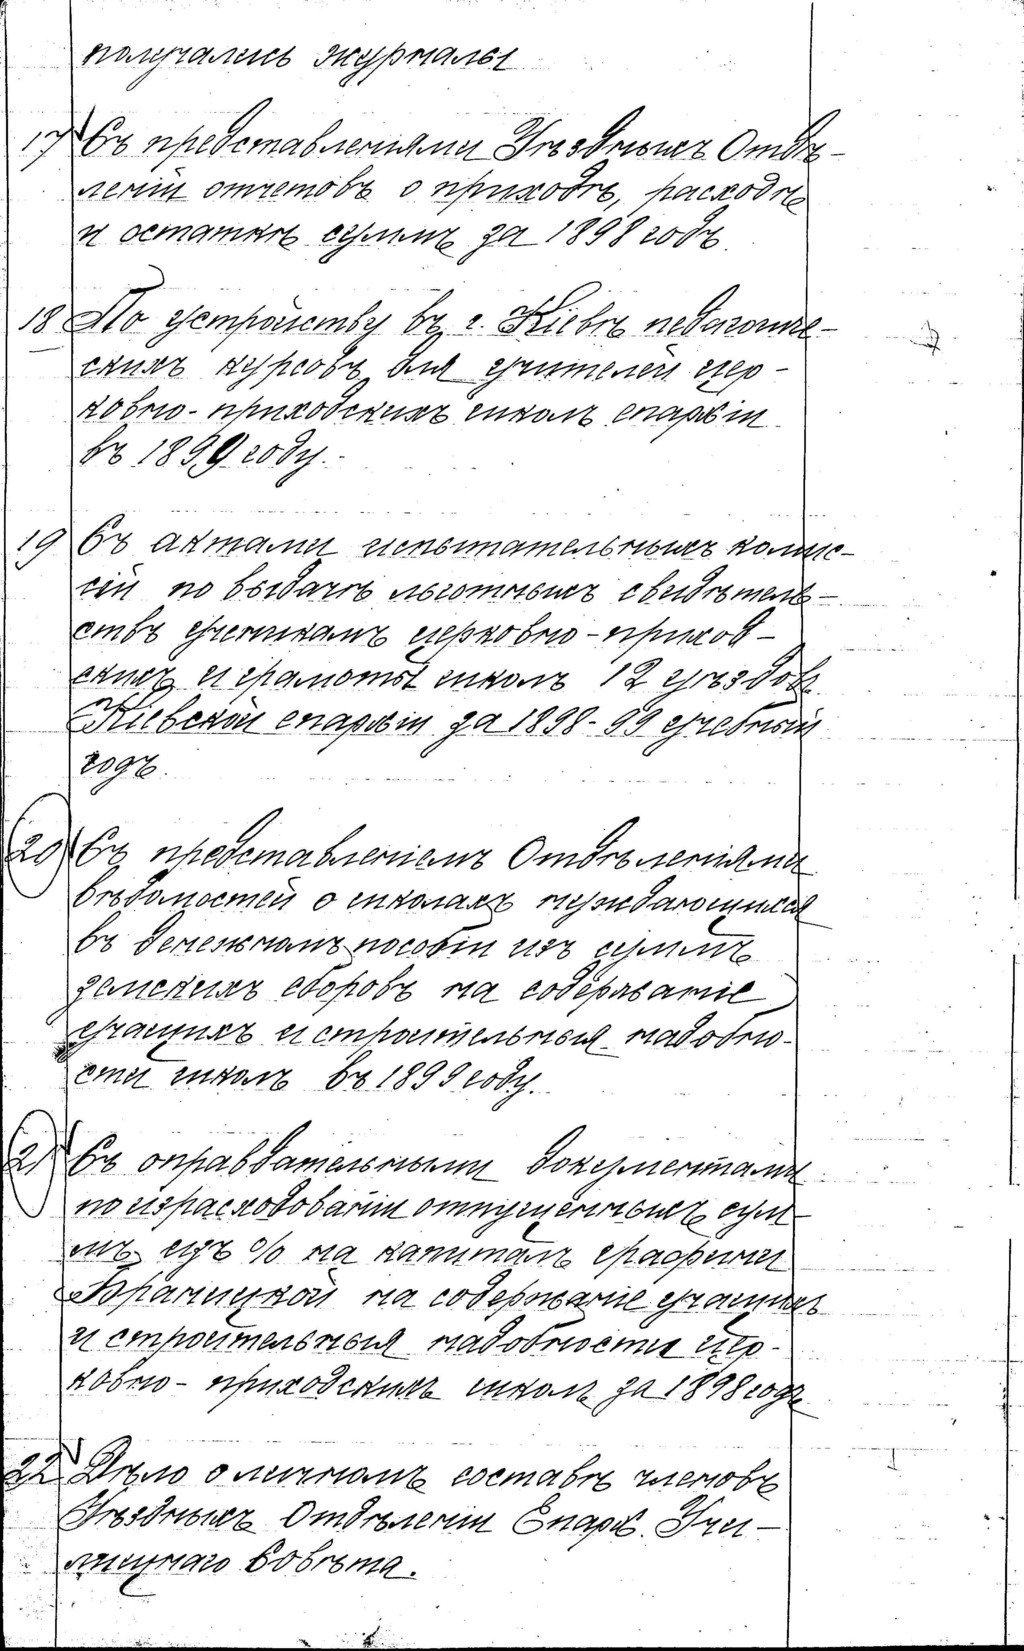 получались журналы
17 Съ представленіями Уѣздныхъ Отдѣ-
леній отчетовъ о приходѣ, расходѣ
и остаткѣ суммъ за 1898 годъ.
18 По устройству въ г. Кіевѣ педагогиче-
скихъ курсовъ для учителей цер-
ковно-приходскихъ школъ епархіи
въ 1899 году.
19 Съ актами испытательныхъ комис-
сій по выдачѣ льготныхъ свидѣтель-
ствъ ученикамъ церковно-приход-
скихъ и грамоты школъ 12 уѣздовъ
Кіевской епархіи за 1898-99 учебный
годъ.
20 Съ представленіемъ Отдѣленіями
вѣдомостей о школахъ нуждающихся
въ денежномъ пособіи изъ суммъ
земскихъ сборовъ на содержаніе
учащихъ и строительныя надобно-
сти школъ въ 1899 году.
21 Съ оправдательными документами
по израсходованіи отпущенныхъ сум-
мъ изъ % на капиталъ графини
Браницкой на содержаніе учащихъ
и строительныя надобности цер-
ковно-приходскихъ школъ за 1898 годъ
22 Дѣло о личномъ составѣ членовъ
Уѣздныхъ Отдѣленій Епарх. Учи-
лищнаго Совѣта.